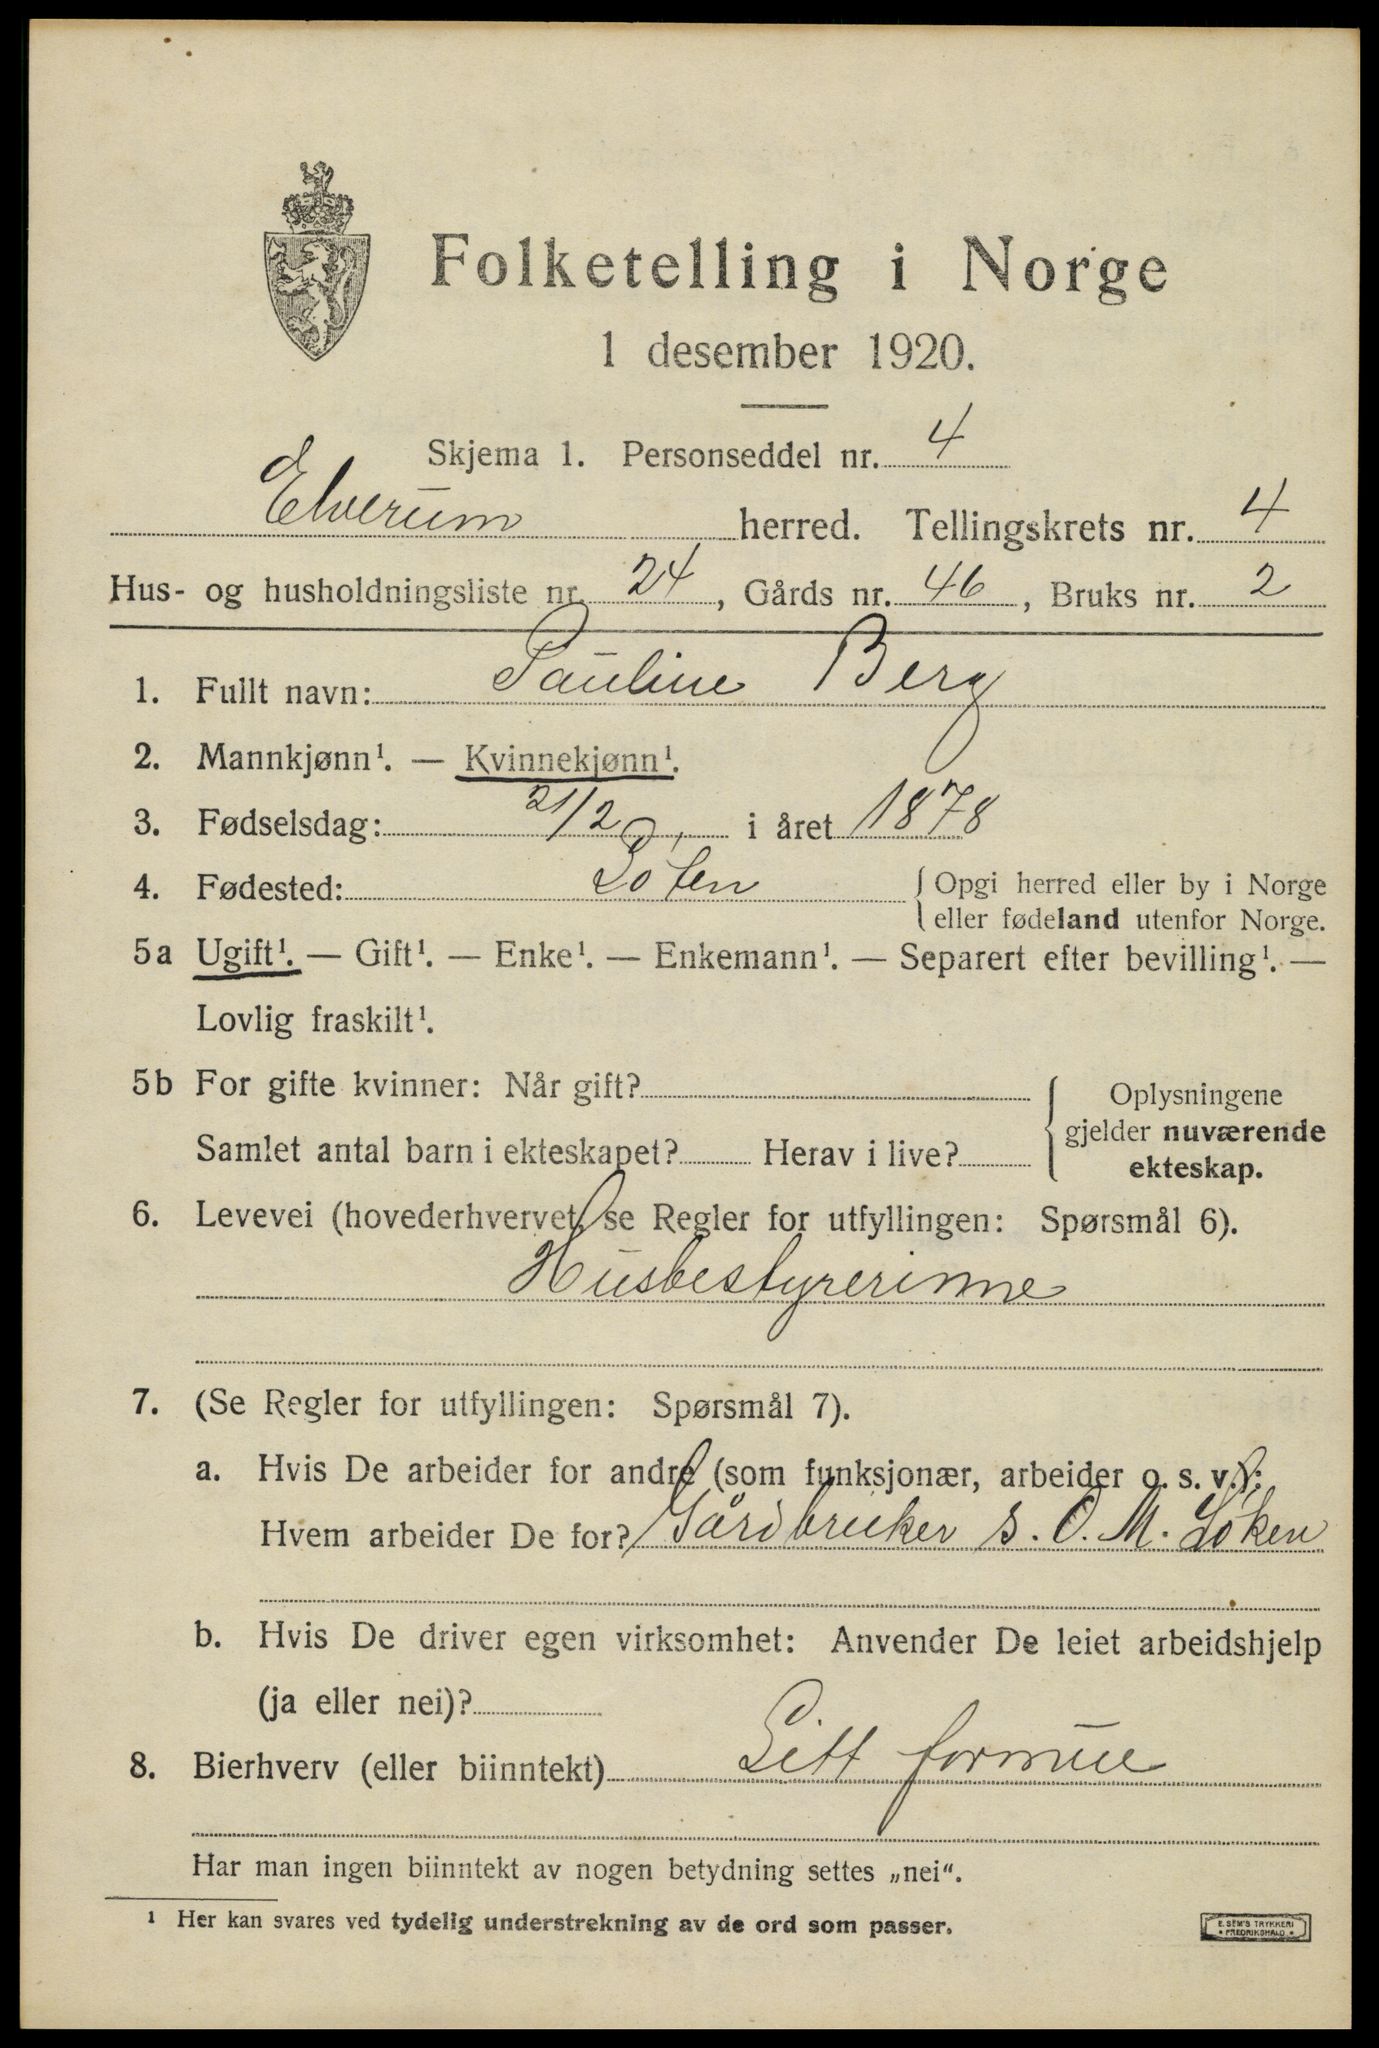 Folketelling i Norge
1 desember 1920.
Skjema 1. Personseddel nr. 4
Elverum herred. Tellingskrets nr. 4
Hus- og husholdningsliste nr. 24, Gårds nr. 46, Bruks nr. 2
1. Fullt navn: Pauline Berg
2. Mannkjønn¹. — Kvinnekjønn¹.
3. Fødselsdag: 21/2, i året 1878
4. Fødested: Løten {Opgi herred eller by i Norge
eller fødeland utenfor Norge.
5a Ugift¹. — Gift¹. — Enke¹. — Enkemann¹. — Separert efter bevilling¹. —
Lovlig fraskilt¹.
5b For gifte kvinner: Når gift?
Samlet antal barn i ekteskapet? Herav i live?
{Oplysningene
gjelder nuværende
ekteskap.
6. Levevei (hovederhvervet, se Regler for utfyllingen: Spørsmål 6).
Husbestyrerinne
7. (Se Regler for utfyllingen: Spørsmål 7).
a. Hvis De arbeider for andre (som funksjonær, arbeider o. s. v.):
Hvem arbeider De for? Gårdbruker S. O. M. Løken
b. Hvis De driver egen virksomhet: Anvender De leiet arbeidshjelp
(ja eller nei)?
8. Bierhverv (eller biinntekt) Litt formue
Har man ingen biinntekt av nogen betydning settes „nei“.
¹ Her kan svares ved tydelig understrekning av de ord som passer.
E. SEM'S TRYKKERI
* FREDRIKSHALD *